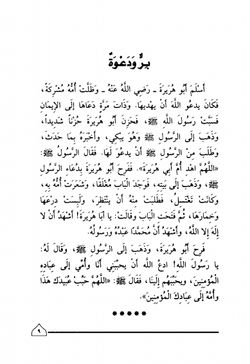 بِرٌّ وَدَعْوَةٌ
أَسْلَمَ أَبُو هُرَيْرَةَ - رَضِيَ اللَّهُ عَنْهُ - وَظَلَّتْ أُمُّهُ مُشْرِكَةً،
فَكَانَ يَدعُو اللَّهَ أَنْ يهْدِيهَا. وَذَاتَ مَرَّةٍ دَعَاهَا إِلَى الإِيمَانِ
فَسَبَّتْ رَسُولَ اللَّهِ ﷺ، فَحَزِنَ أَبُو هُرَيْرَةَ حُزْنًا شَدِيدًا،
وَذَهَبَ إِلَى الرَّسُولِ ﷺ وَهُوَ يبْكِي، وَأَخْبَرَهُ بِمَا حَدَثَ،
وَطَلَبَ مِنَ الرَّسُولِ ﷺ أَنْ يدْعُوَ لَهَا. فَقَالَ الرَّسُولُ ﷺ:
«اللَّهُمَّ اهْدِ أُمَّ أَبِي هُرَيرَةَ». فَفَرِحَ أَبُو هُرَيْرَةَ بِدُعَاءِ الرَّسُولِ
ﷺ، وَذَهَبَ إِلَى بَيْتِهِ، فَوَجَدَ الْبَابَ مُغْلَقًا، وَشَعَرَتْ أُمُّهُ بِهِ،
وَكَانَتْ تَغْتَسِلُ، فَطَلَبَتْ مِنْهُ أَنْ يَنْتَظِرَ، وَلَبِسَتْ دِرْعَهَا
وَخِمَارَهَا، ثُمَّ فَتَحَتِ الْبَابَ وَقَالَتْ: يَا أبَا هُرَيْرَةَ! أَشْهَدُ أَنْ لا
إِلَهَ إِلا اللَّهُ، وَأَشْهَدُ أَنَّ مُحَمَّدًا عَبْدُهُ وَرَسُولُهُ.
فَرِحَ أَبُو هُرَيْرَةَ، وَذَهَبَ إِلَى الرَّسُولِ ﷺ، وَقَالَ لَهُ:
يَا رَسُولَ اللَّهِ! ادعُ اللَّهَ أَنْ يُحَبِّبَنِي أَنَا وَأُمِّي إِلَى عِبَادِهِ
الْمُؤْمِنِينَ، وَيحَبِّبَهُمْ إِلَينَا، فَقَالَ ﷺ: «اللَّهُمَّ حَبِّبْ عُبَيدَكَ هَذَا
وَأُمَّهُ إِلَى عِبَادِكَ الْمُؤْمِنِينَ».
*****
٩